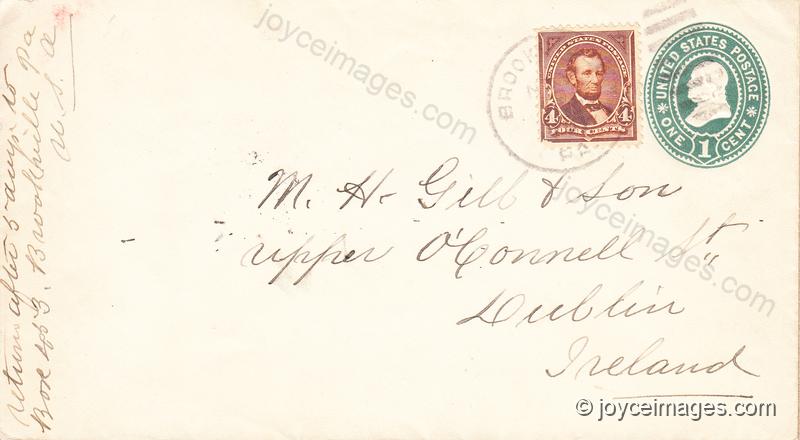 return after 5 days to
Box 463. Brookville Pa
U. S. A
BROOK
PA
UNITED STATES POSTAGE
4 4
FOUR CENTS
UNITED STATES POSTAGE
ONE 1 CENT
M. H. Gill & Son
upper O'Connell St.
Dublin
Ireland
joyceimages.com
joyceimages.com
© joyceimages.com